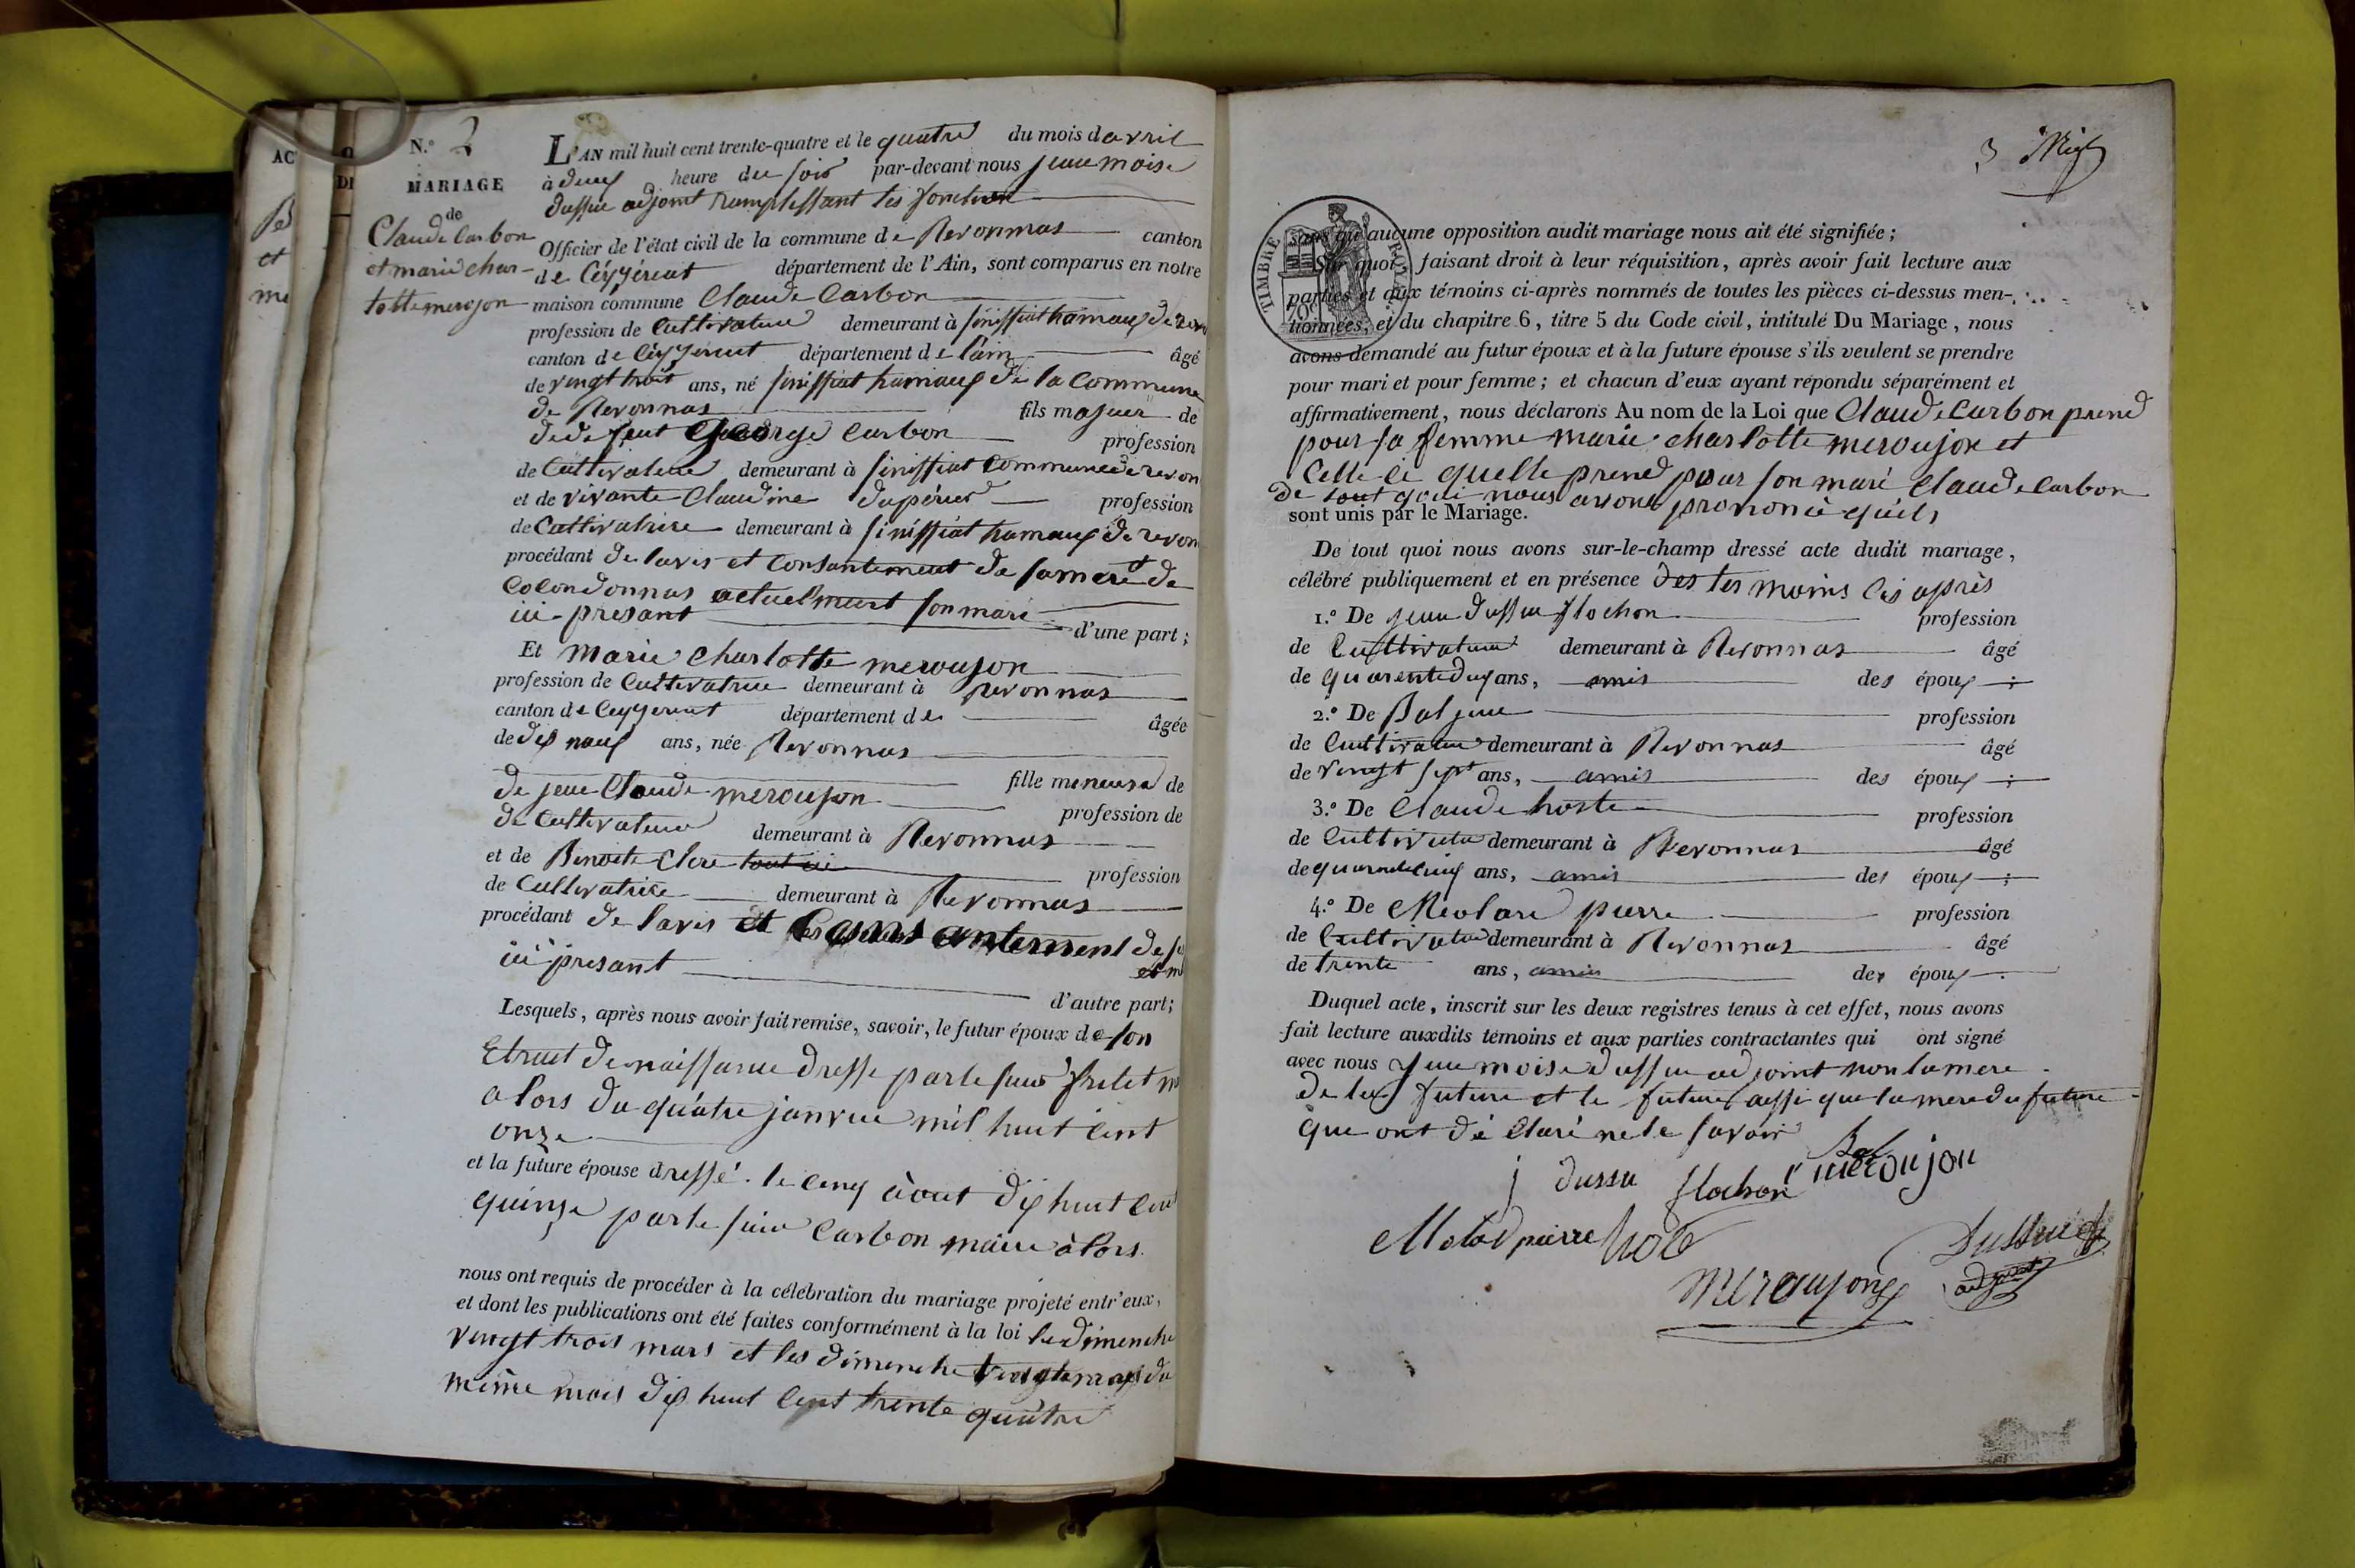 N.º 2
MARIAGE
de
Claude Carbon
et marie char-
lotte merojon
L'AN mil huit cent trente-quatre et le quatre du mois d avril
à deux heure du soir par-devant nous jean moise
dussuc adjoint remplissant les fonction
Officier de l'état civil de la commune de Revonnas canton
de Ceyzériat département de l'Ain, sont comparus en notre
maison commune Claude Carbon
profession de Cultivateur demeurant à sinissiat hamaux de revon
canton de Ceyzeriat département de l'ain âgé
de vingt trois ans, né sinissiat hamaux de la Commune
de Revonnas fils majeur de
de defeut George Carbon profession
de Cultivateur demeurant à sinissiat Commune de revon
et de vivante Claudine dupérier profession
de Cultivatrice demeurant à sinissiat hamaux de revon
procédant de lavis et Consantement de sa mere de
Colondonnas actuelment son mari
ici-presant d'une part;
Et marie charlotte meroujon
profession de Cultivatrice demeurant à revonnas
canton de Ceyzeriat département de âgée
de dix neuf ans, née Revonnas
fille meneure de
de jean Claude meroujon profession de
de Cultivateur demeurant à Revonnas
et de Benoite Clere profession
de Cultivatrice demeurant à Revonnas
procédant de lavis et Consantement de
ici presant et m
d'autre part;
Lesquels, après nous avoir fait remise, savoir, le futur époux de son
Etrait de naissance dresse par le sieur frilet m
alors du quatre janvier mil huit cent
onze
et la future épouse dressé le cinq aout dix huit cen
quinze par le sieur Carbon maire alors
nous ont requis de procéder à la célébration du mariage projeté entr'eux,
et dont les publications ont été faites conformément à la loi le dimenche
vingt trois mars et les dimenche du
même mois dix huit cent trente quatre
3
TIMBRE ROYAL
70c
sans qu'aucune opposition audit mariage nous ait été signifiée;
Sur quoi, faisant droit à leur réquisition, après avoir fait lecture aux
parties et aux témoins ci-après nommés de toutes les pièces ci-dessus men-
tionnées, et du chapitre 6, titre 5 du Code civil, intitulé Du Mariage, nous
avons demandé au futur époux et à la future épouse s'ils veulent se prendre
pour mari et pour femme; et chacun d'eux ayant répondu séparément et
affirmativement, nous déclarons Au nom de la Loi que Claude Carbon prend
pour sa femme marie charlotte meroujon et
Celle ci quelle prend pour son mari Claude Carbon
de tout quoi nous avons prononcé quils
sont unis par le Mariage.
De tout quoi nous avons sur-le-champ dressé acte dudit mariage,
célébré publiquement et en présence des tes moins cis après
1.º De jean dussuc flochon profession
de Cultivateur demeurant à Revonnas âgé
de quarente deux ans, amis des époux ;
2.º De Bal jean profession
de Cultivateur demeurant à Revonnas âgé
de vingt sept ans, amis des époux ;
3.º De Claude hoste profession
de Cultivateur demeurant à Revonnas âgé
de quarante cinq ans, amis des époux ;
4.º De Meolare pierre profession
de Cultivateur demeurant à Revonnas âgé
de trente ans, amis des époux .
Duquel acte, inscrit sur les deux registres tenus à cet effet, nous avons
fait lecture auxdits témoins et aux parties contractantes qui ont signé
avec nous jean moise dussuc adjoint non la mere
de la future et le future aussi que la mere du future
que ont dé claré ne le savoir
j dussu flochon Bal meroujon
pierre
meraujon Dussuc
adjoint
AC
O
DI
et